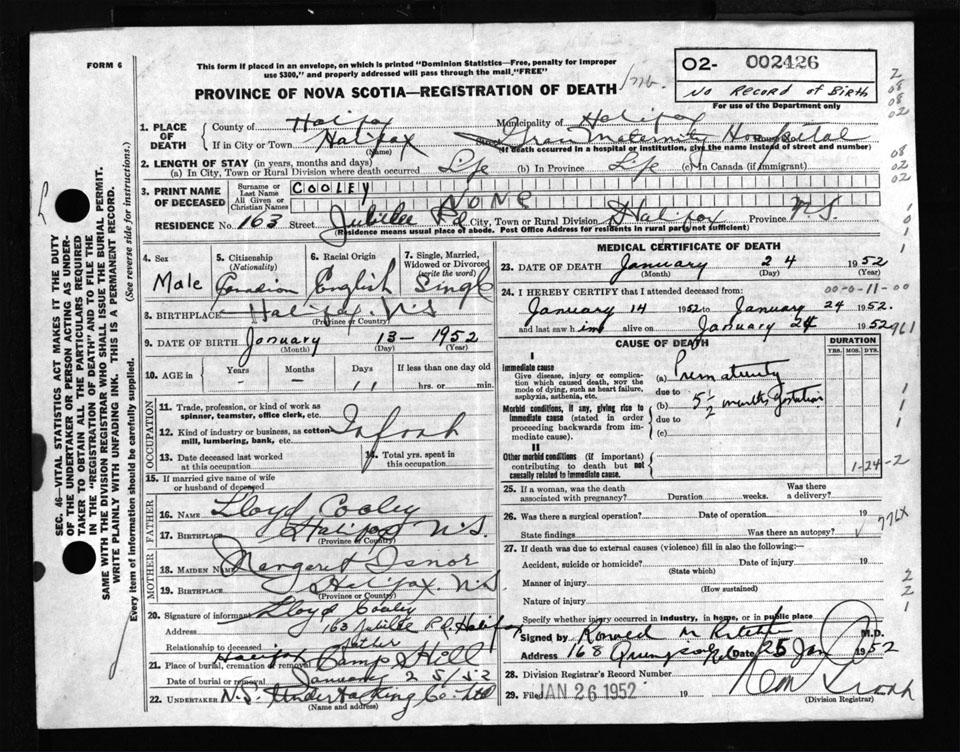 FORM 6
This form if placed in an envelope, on which is printed "Dominion Statistics—Free, penalty for improper
use $300," and properly addressed will pass through the mail "FREE"
02- 002426
No Record of Birth
For use of the Department only
PROVINCE OF NOVA SCOTIA—REGISTRATION OF DEATH
1. PLACE OF DEATH
County of Halifax Municipality of Halifax
If in City or Town Halifax Street Maternity Hospital
(Name) (If death occurred in a hospital or institution, give the name instead of street and number)
2. LENGTH OF STAY (in years, months and days)
(a) In City, Town or Rural Division where death occurred Life (b) In Province Life (c) In Canada (if immigrant)
3. PRINT NAME OF DECEASED
Surname or Last Name COOLEY
All Given or Christian Names NONE
RESIDENCE No. 163 Street Jubilee Rd City, Town or Rural Division Halifax Province N.S.
(Residence means usual place of abode. Post Office Address for residents in rural parts not sufficient)
4. Sex Male
5. Citizenship (Nationality) Canadian
6. Racial Origin English
7. Single, Married, Widowed or Divorced (write the word) Single
8. BIRTHPLACE Halifax N.S
(Province or Country)
9. DATE OF BIRTH January 13 – 1952
(Month) (Day) (Year)
10. AGE in Years Months Days If less than one day old
- - 11 hrs. or min.
OCCUPATION
11. Trade, profession, or kind of work as spinner, teamster, office clerk, etc.
12. Kind of industry or business, as cotton mill, lumbering, bank, etc.
Infant
13. Date deceased last worked at this occupation
14. Total yrs. spent in this occupation
15. If married give name of wife or husband of deceased
FATHER
16. NAME Lloyd Cooley
17. BIRTHPLACE Halifax N.S.
(Province or Country)
MOTHER
18. MAIDEN NAME Margaret Isnor
19. BIRTHPLACE Halifax. N.S
(Province or Country)
20. Signature of informant Lloyd Cooley
Address 163 Jubilee Rd. Halifax
Relationship to deceased father
21. Place of burial, cremation or removal Halifax Camp Hill
Date of burial or removal January 25/52
22. UNDERTAKER N.S. Undertaking Co Ltd
(Name and address)
MEDICAL CERTIFICATE OF DEATH
23. DATE OF DEATH January 24 1952
(Month) (Day) (Year)
00-0-11-00
24. I HEREBY CERTIFY that I attended deceased from:
January 14 1952 to January 24 1952.
and last saw him alive on January 24 1952
CAUSE OF DEATH
DURATION
YRS. MOS. DYS.
I
Immediate cause
Give disease, injury or complication which caused death, not the mode of dying, such as heart failure, asphyxia, asthenia, etc.
(a) Prematurity
due to
Morbid conditions, if any, giving rise to immediate cause (stated in order proceeding backwards from immediate cause).
(b) 5 1/2 months gestation
due to
(c)
II
Other morbid conditions (if important) contributing to death but not causally related to immediate cause.
1-24-2
25. If a woman, was the death associated with pregnancy? Duration weeks. Was there a delivery?
26. Was there a surgical operation? Date of operation 19
State findings Was there an autopsy?
776X
27. If death was due to external causes (violence) fill in also the following:—
Accident, suicide or homicide? Date 19
(State which)
Manner of injury
(How sustained)
Nature of injury
Specify whether injury occurred in industry, in home, or in public place
Signed by M.D.
Address 168 Date 25 Jan 1952
28. Division Registrar's Record Number
29. Filed JAN 26 1952 19
(Division Registrar)
SEC. 46—VITAL STATISTICS ACT MAKES IT THE DUTY
OF THE UNDERTAKER OR PERSON ACTING AS UNDER-
TAKER TO OBTAIN ALL THE PARTICULARS REQUIRED
IN THE "REGISTRATION OF DEATH" AND TO FILE THE
SAME WITH THE DIVISION REGISTRAR WHO SHALL ISSUE THE BURIAL PERMIT.
WRITE PLAINLY WITH UNFADING INK. THIS IS A PERMANENT RECORD.
Every item of information should be carefully supplied. (See reverse side for instructions.)